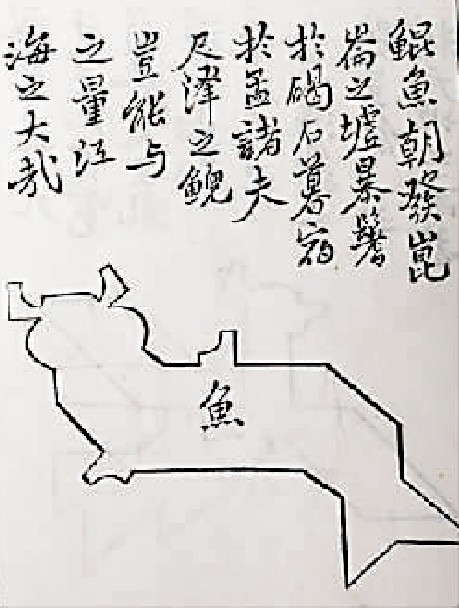 鯤魚朝發崑
崙之墟暴鬐
於碣石暮宿
於孟諸夫
尺澤之鯢
豈能与
之量江
海之大哉
魚